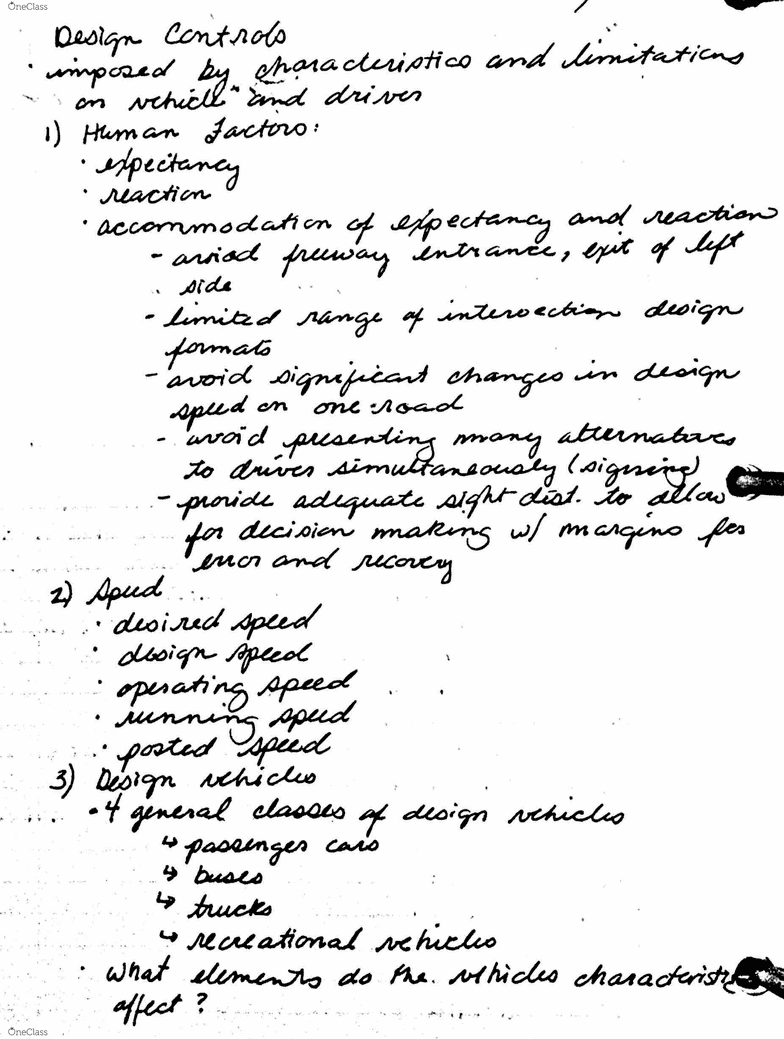 OneClass
Design Controls
· imposed by characteristics and limitations
on vehicle and driver
1) Human Factors:
· expectancy
· reaction
· accommodation of expectancy and reaction
- avoid freeway entrance, exit of left
side
- limited range of intersection design
formats
- avoid significant changes in design
speed on one road
- avoid presenting many alternatives
to driver simultaneously (signing)
- provide adequate sight dist. to allow
for decision making w/ margins for
error and recovery
2) Speed
· desired speed
· design speed
· operating speed
· running speed
· posted speed
3) Design vehicles
· 4 general classes of design vehicles
↳ passenger cars
↳ buses
↳ trucks
↳ recreational vehicles
· What elements do the vehicles characteristi
affect?
OneClass